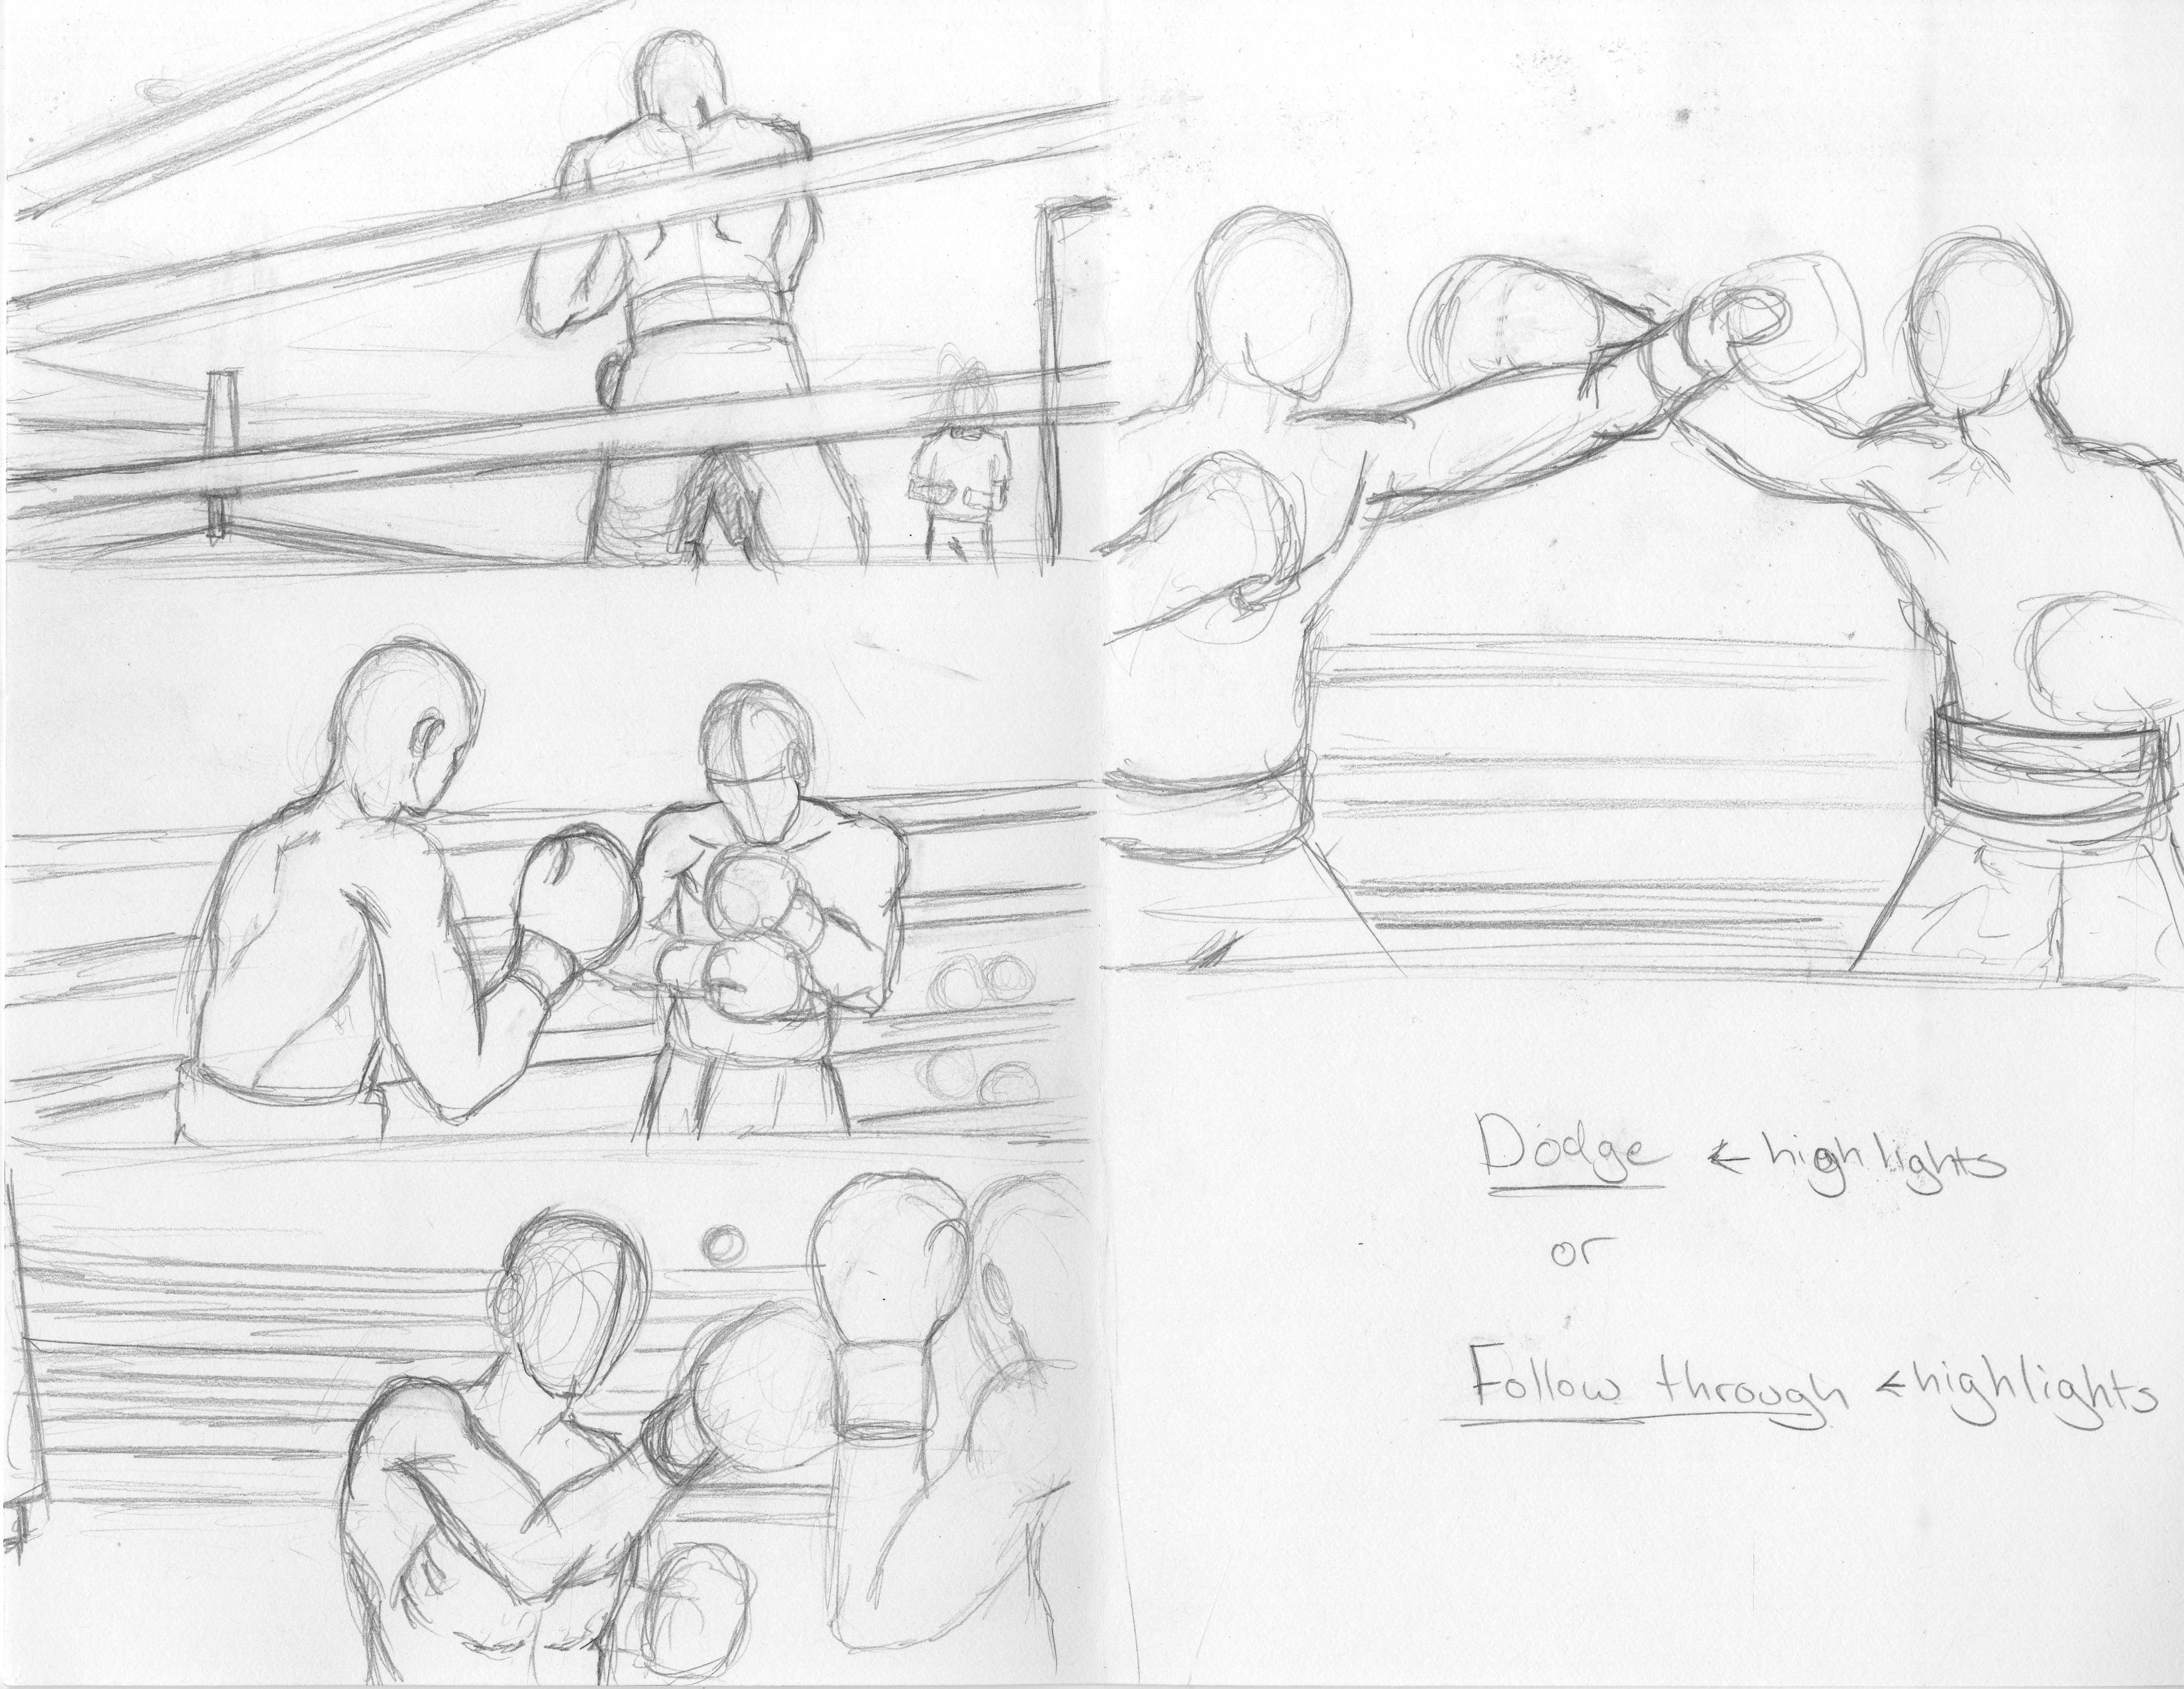 Dodge ← highlights
or
Follow through ← highlights